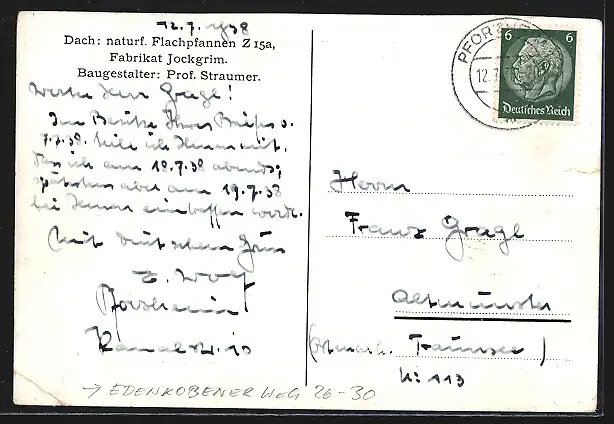 12.7.1938
Dach: naturf. Flachpfannen Z 15a,
Fabrikat Jockgrim.
Baugestalter: Prof. Straumer.
Werter Herr Gragl!
Im Besitze Ihres Briefes v.
7.7.38. teile ich Ihnen mit,
dass ich am 18.7.38 abends,
spätestens aber am 19.7.38
bei Ihnen eintreffen werde.
Mit deutschem Gruss
E. Wolf
Pforzheim
Kanalstr. 10
→ EDENKOBENER WEG 26-30
PFORZHEIM
12.7.
6 6
Deutsches Reich
Herrn
Franz Gragl
Altmünster
(Ostmark. Traunsee)
N: 113